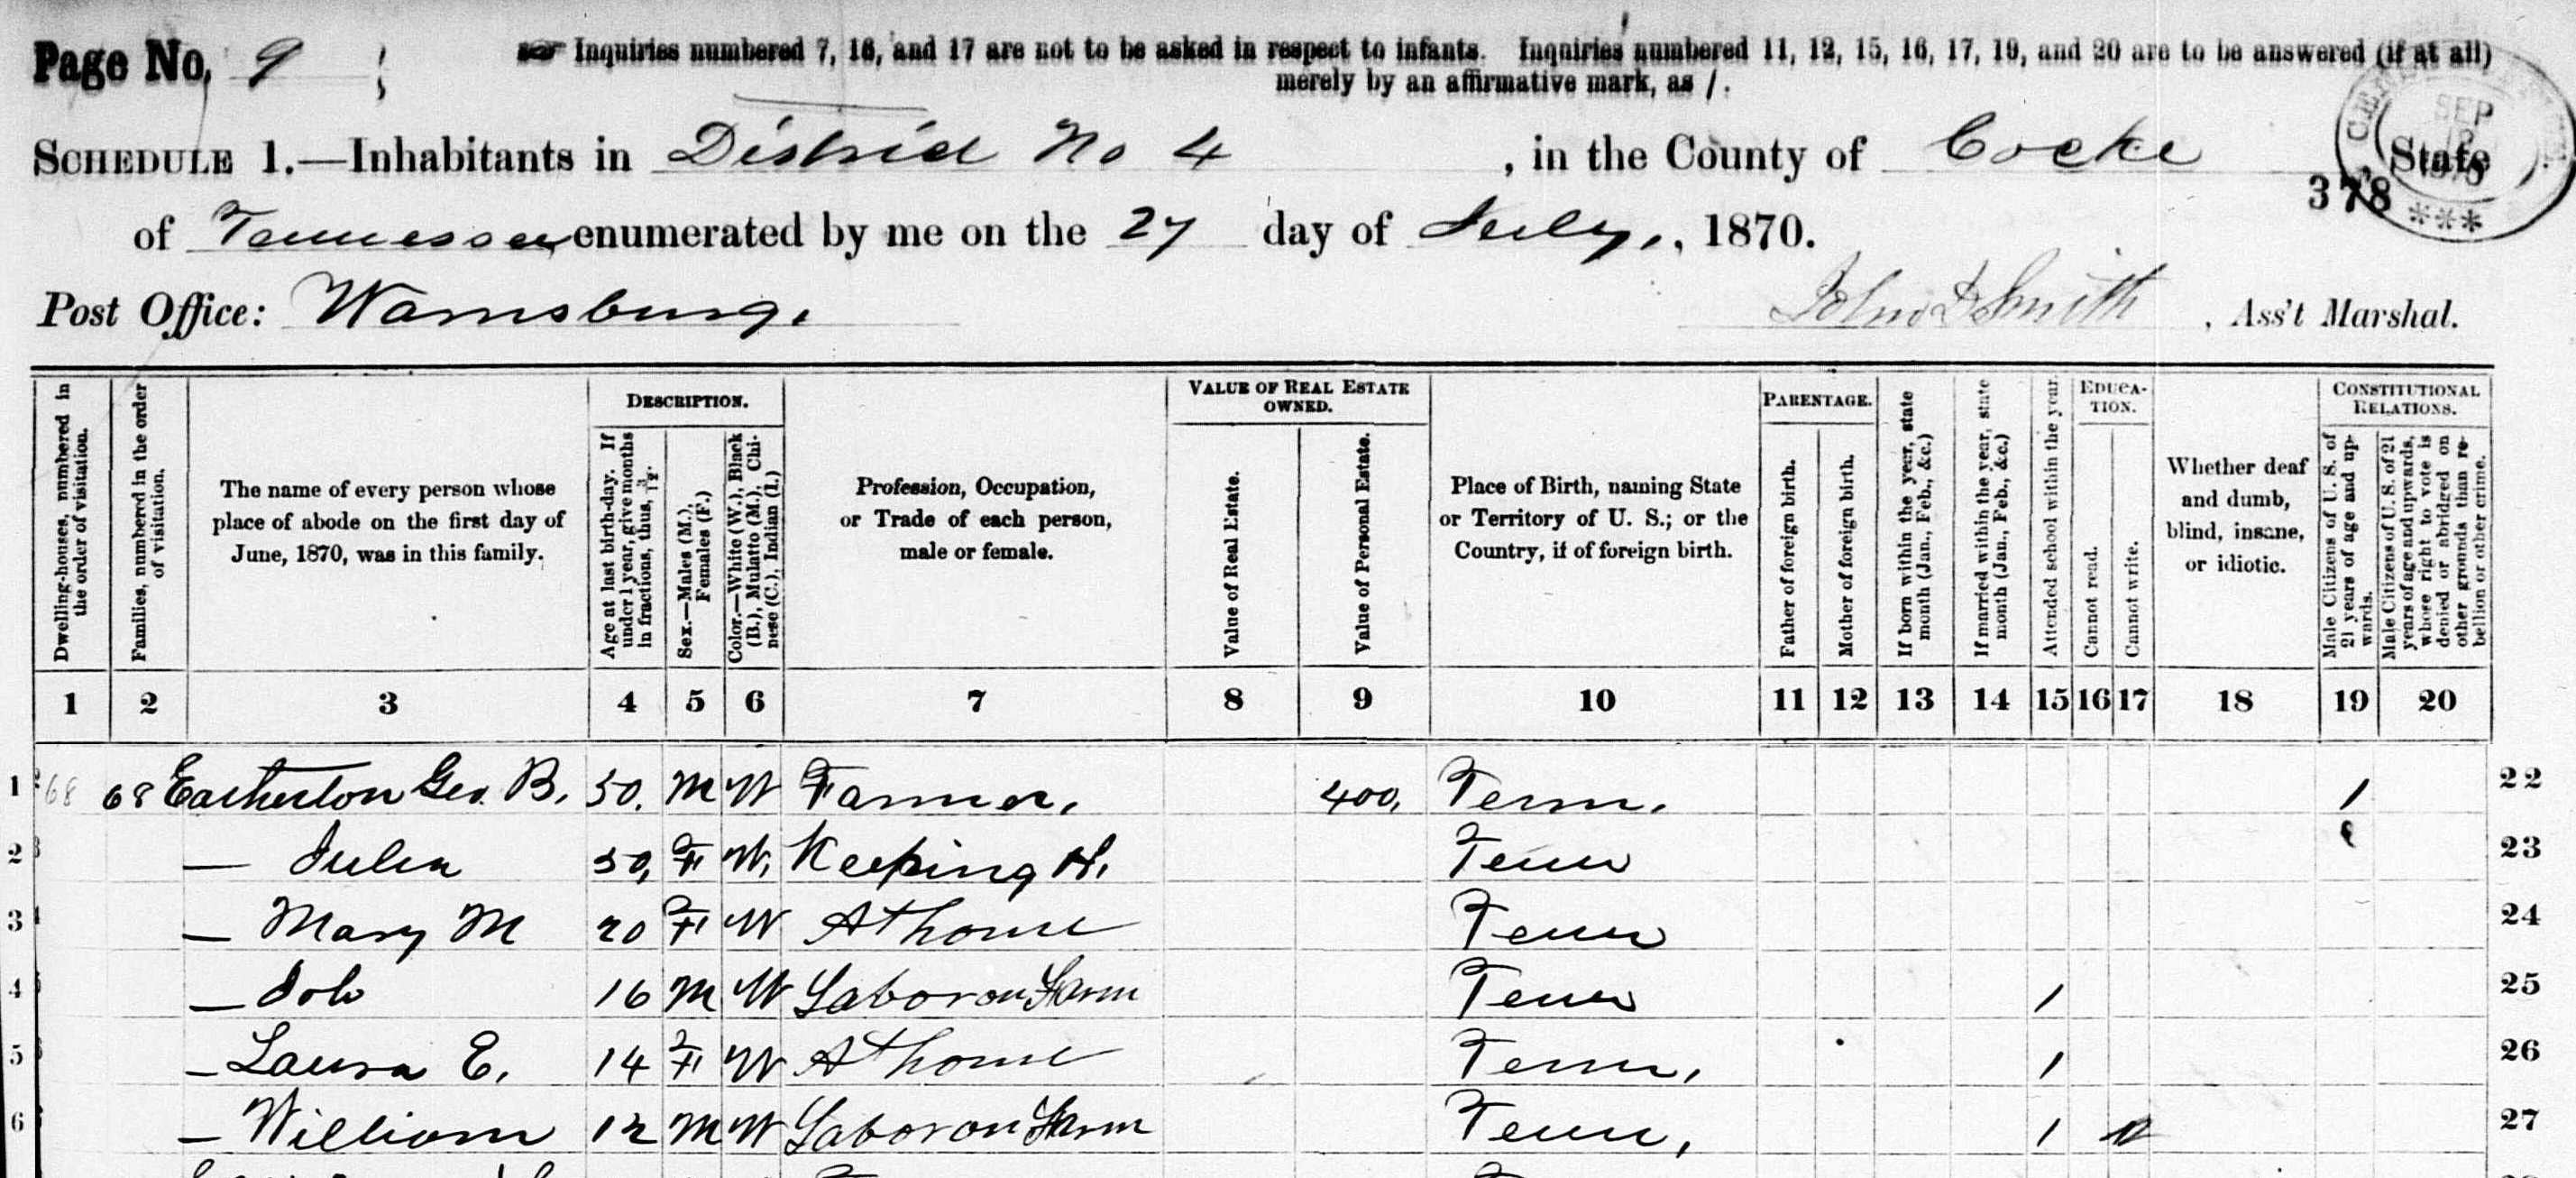 Page No. 9
Inquiries numbered 7, 16, and 17 are not to be asked in respect to infants. Inquiries numbered 11, 12, 15, 16, 17, 19, and 20 are to be answered (if at all)
merely by an affirmative mark, as /.
SCHEDULE 1.—Inhabitants in District No 4, in the County of Cocke, State
378
of Tennessee, enumerated by me on the 27 day of July, 1870.
Post Office: Warnsburg. John Smith, Ass't Marshal.
Dwelling-houses, numbered in the order of visitation.
Families, numbered in the order of visitation.
The name of every person whose place of abode on the first day of June, 1870, was in this family.
DESCRIPTION.
Age at last birth-day. If under 1 year, give months in fractions, thus, 3/12.
Sex.—Males (M.), Females (F.)
Color.—White (W.), Black (B.), Mulatto (M.), Chinese (C.), Indian (I.)
Profession, Occupation, or Trade of each person, male or female.
VALUE OF REAL ESTATE OWNED.
Value of Real Estate.
Value of Personal Estate.
Place of Birth, naming State or Territory of U. S.; or the Country, if of foreign birth.
PARENTAGE.
Father of foreign birth.
Mother of foreign birth.
If born within the year, state month (Jan., Feb., &c.)
If married within the year, state month (Jan., Feb., &c.)
Attended school within the year.
EDUCATION.
Cannot read.
Cannot write.
Whether deaf and dumb, blind, insane, or idiotic.
CONSTITUTIONAL RELATIONS.
Male Citizens of U. S. of 21 years of age and upwards.
Male Citizens of U. S. of 21 years of age and upwards, whose right to vote is denied or abridged on other grounds than rebellion or other crime.
1 2 3 4 5 6 7 8 9 10 11 12 13 14 15 16 17 18 19 20
1 68 68 Eatherton Geo. B. 50. M W Farmer, 400, Tenn. / 22
2 — Julia 50, F W. Keeping H. Tenn 23
3 — Mary M 20 F W At home Tenn 24
4 — Job 16 M W Labor on Farm Tenn / 25
5 — Laura E. 14 F W At home Tenn, / 26
6 — William 12 M W Labor on Farm Tenn, / 27